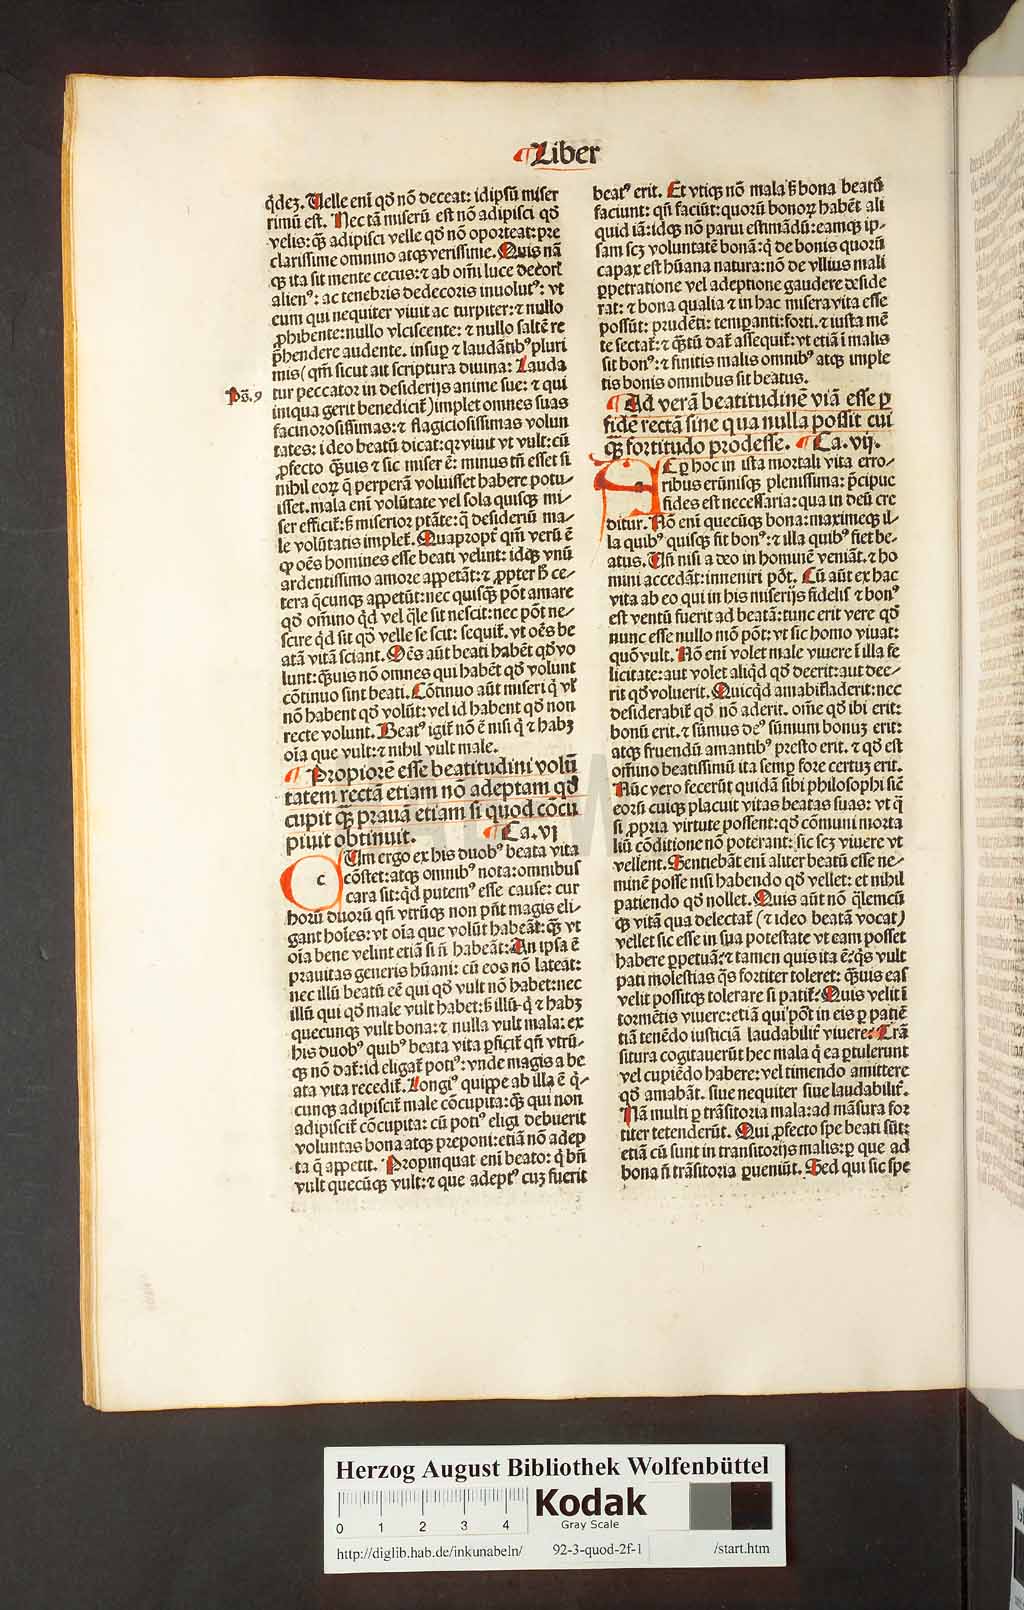 ¶Liber
q̃dez. Uelle eni᷑ qd̕ nõ deceat: idip̃sũ miser
rimũ est. Nec tã miserũ est nõ adipisci qd̕
velis: q̃ꝫ adipisci velle qd̕ nõ oporteat: pre
clarissime omnino atqꝫ verissime. Quis nã
qꝫ ita sit mente cecus: ⁊ ab om̃i luce decor̃
alienꝰ: ac tenebris dedecoris inuolutꝰ: vt
eum qui nequiter viuit ac turpiter: ⁊ nullo
ꝓhibente: nullo vlciscente: ⁊ nullo saltẽ re
p̃hendere audente. insuꝑ ⁊ laudãtibꝰ pluri
mis (qm̃ sicut ait scriptura diuina: Lauda
Ps̃. 9
tur peccator in desiderijs anime sue: ⁊ qui
iniqua gerit benedicit᷑) implet omnes suas
facinorosissimas: ⁊ flagiciosissimas volun
tates: ideo beatũ dicat: qꝛ viuit vt vult: cũ
ꝓfecto q̃ꝫuis ⁊ sic miser ẽ: minus tñ esset si
nihil eoꝝ q̃ perperã voluisset habere potu/
isset. mala eni᷑ volũtate vel sola quisqꝫ mi/
ser efficit᷑: sꝫ miserior ptãte: q̃ desideriũ ma/
le volũtatis implet᷑. Quapropt̕ qm̃ verũ ẽ
ꝙ oẽs homines esse beati velint: idqꝫ vnũ
ardentissimo amore appetãt: ⁊ ꝓpter h̕ ce/
tera q̃cunqꝫ appetũt: nec quisq̃ꝫ põt amare
qd̕ om̃ino q̃d vel q̃le sit nescit: nec põt ne/
scire q̃d sit qd̕ velle se scit: sequit᷑. vt oẽs be
atã vitã sciant. Oẽs aũt beati habẽt qd̕ vo
lunt: q̃ꝫuis nõ omnes qui habẽt qd̕ volunt
cõtinuo sint beati. Cõtinuo aũt miseri q̃ vl̕
nõ habent qd̕ volũt: vel id habent qd̕ non
recte volunt. Beatꝰ igit᷑ nõ ẽ nisi q̃ ⁊ habꝫ
oĩa que vult: ⁊ nihil vult male.
¶ Propiorẽ esse beatitudini volũ
tatem rectã etiam nõ adeptam qd̕
cupit q̃ꝫ prauã etiam si quod cõcu
piuit obtinuit. ¶ Ca. vj
c
Um ergo ex his duobꝰ beata vita
cõstet: atqꝫ omnibꝰ nota: omnibus
cara sit: q̃d putemꝰ esse cause: cur
horũ duorũ qñ vtrũqꝫ non pñt magis eli/
gant hoĩes: vt oĩa que volũt habeãt: q̃ꝫ vt
oĩa bene velint etiã si ñ habeãt: An ipsa ẽ
prauitas generis hũani: cũ eos nõ lateat:
nec illũ beatũ eẽ qui qd̕ vult nõ habet: nec
illũ qui qd̕ male vult habet: sꝫ illũ q̃ ⁊ habꝫ
quecunqꝫ vult bona: ⁊ nulla vult mala: ex
his duobꝰ quibꝰ beata vita ꝑficit᷑ qñ vtrũ/
qꝫ nõ dat᷑: id eligat᷑ potiꝰ: vnde magis a be
ata vita recedit᷑. Longiꝰ quippe ab illa ẽ q̃/
cunqꝫ adipiscit᷑ male cõcupita: q̃ꝫ qui non
adipiscit᷑ cõcupita: cũ potiꝰ eligi debuerit
voluntas bona atqꝫ preponi: etiã nõ adep
ta q̃ appetit. Propinquat eni᷑ beato: q̃ bñ
vult quecũqꝫ vult: ⁊ que adeptꝰ cuꝫ fuerit
beatꝰ erit. Et vtiqꝫ nõ mala sꝫ bona beatũ
faciunt: qñ faciũt: quorũ bonoꝝ habẽt ali
quid iã: idqꝫ nõ parui estimãdũ: eamqꝫ ip/
sam scꝫ voluntatẽ bonã: q̃ de bonis quorũ
capax est hũana natura: nõ de vllius mali
ꝑpetratione vel adeptione gaudere deside
rat: ⁊ bona qualia ⁊ in hac misera vita esse
possũt: prudẽti: temꝑanti: forti. ⁊ iusta mẽ
te sectat᷑: ⁊ q̃ꝫtũ dat᷑ assequit᷑: vt etiã ĩ malis
sit bonꝰ: ⁊ finitis malis omnibꝰ atqꝫ imple
tis bonis omnibus sit beatus.
¶ Ad verã beatitudinẽ viã esse ꝑ
fidẽ rectã sine qua nulla possit cui
q̃ꝫ fortitudo prodesse. ¶ Ca. vij.
a
C ꝑ hoc in ista mortali vita erro/
ribus erũnisqꝫ plenissima: p̃cipue
fides est necessaria: qua in deũ cre
ditur. Nõ eni᷑ quecũqꝫ bona: maximeqꝫ il/
la quibꝰ quisqꝫ fit bonꝰ: ⁊ illa quibꝰ fiet be/
atus. Uñ nisi a deo in hominẽ veniãt. ⁊ ho
mini accedãt: inueniri põt. Cũ aũt ex hac
vita ab eo qui in his miserijs fidelis ⁊ bonꝰ
est ventũ fuerit ad beatã: tunc erit vere qd̕
nunc esse nullo mõ põt: vt sic homo viuat:
quõ vult. Nõ eni᷑ volet male viuere ĩ illa fe
licitate: aut volet aliq̃d qd̕ deerit: aut dee/
rit qd̕ voluerit. Quicq̃d amabit᷑ aderit: nec
desiderabit᷑ qd̕ nõ aderit. om̃e qd̕ ibi erit:
bonũ erit. ⁊ sũmus deꝰ sũmum bonuꝫ erit:
atqꝫ fruendũ amantibꝰ presto erit. ⁊ qd̕ est
om̃ino beatissimũ ita semꝑ fore certuꝫ erit.
Nũc vero fecerũt quidã sibi philosophi sic̃
eorũ cuiqꝫ placuit vitas beatas suas: vt q̃
si ꝓpria virtute possent: qd̕ cõmuni morta
liũ cõditione nõ poterant: sic scꝫ viuere vt
vellent. Sentiebãt eni᷑ aliter beatũ esse ne/
minẽ posse nisi habendo qd̕ vellet: et nihil
patiendo qd̕ nollet. Quis aũt nõ q̃lemcũ
qꝫ vitã qua delectat᷑ (⁊ ideo beatã vocat)
vellet sic esse in sua potestate vt eam posset
habere ꝑpetuã: ⁊ tamen quis ita ẽ: q̃s vult
pati molestias q̃s fortiter toleret: q̃ꝫuis eas
velit possitqꝫ tolerare si patit᷑: Quis velit ĩ
tormẽtis viuere: etiã qui põt in eis ꝑ patiẽ
tiã tenẽdo iusticiã laudabilit᷑ viuere: Trã
situra cogitauerũt hec mala q̃ ea ꝑtulerunt
vel cupiẽdo habere: vel timendo amittere
qd̕ amabãt. siue nequiter siue laudabilit᷑.
Nã multi ꝑ trãsitoria mala: ad mãsura for
titer tetenderũt. Qui ꝓfecto spe beati sũt:
etiã cũ sunt in transitorijs malis: ꝑ que ad
bona ñ trãsitoria ꝑueniũt. Sed qui sic spe
Herzog August Bibliothek Wolfenbüttel
0 1 2 3 4
Kodak
Gray Scale
http://diglib.hab.de/inkunabeln/ 92-3-quod-2f-1 /start.htm